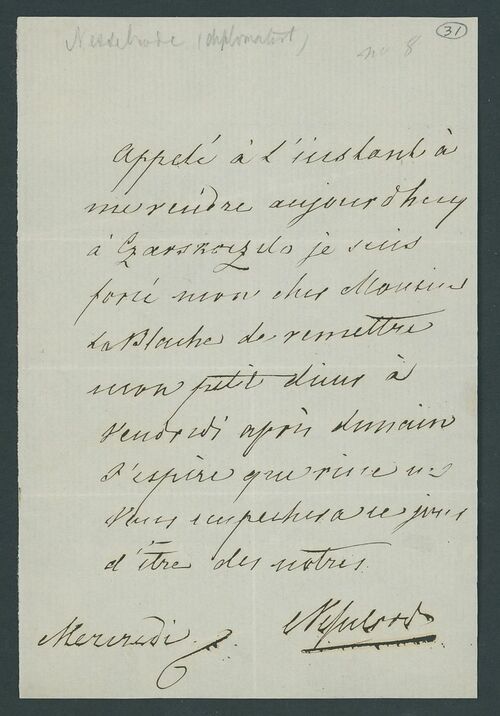 Nesselrode (diplomatist)
no 8
31
Appelé à l'instant à
me rendre aujourd'huy
à Czarskoezelo je suis
forcé mon cher Monsieur
La Blache de remettre
mon petit diner à
Vendredi après demain
J'espère que rien ne
Vous empechera ce jour
d'être des notres.
Nesselrode
Mercredi